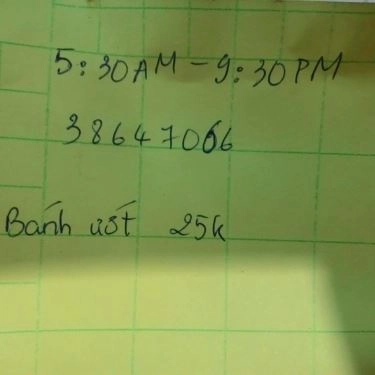 5:30AM - 9:30PM
38647066
Bánh ướt 25k